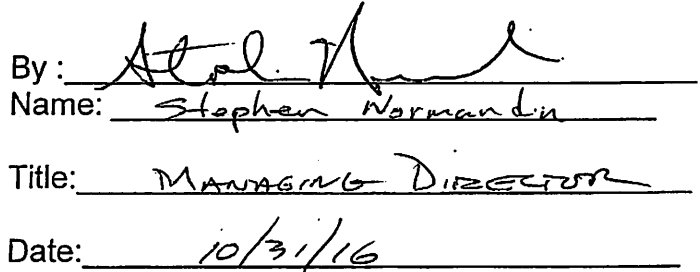 By :
Name: Stephen Normandin
Title: MANAGING DIRECTOR
Date: 10/31/16